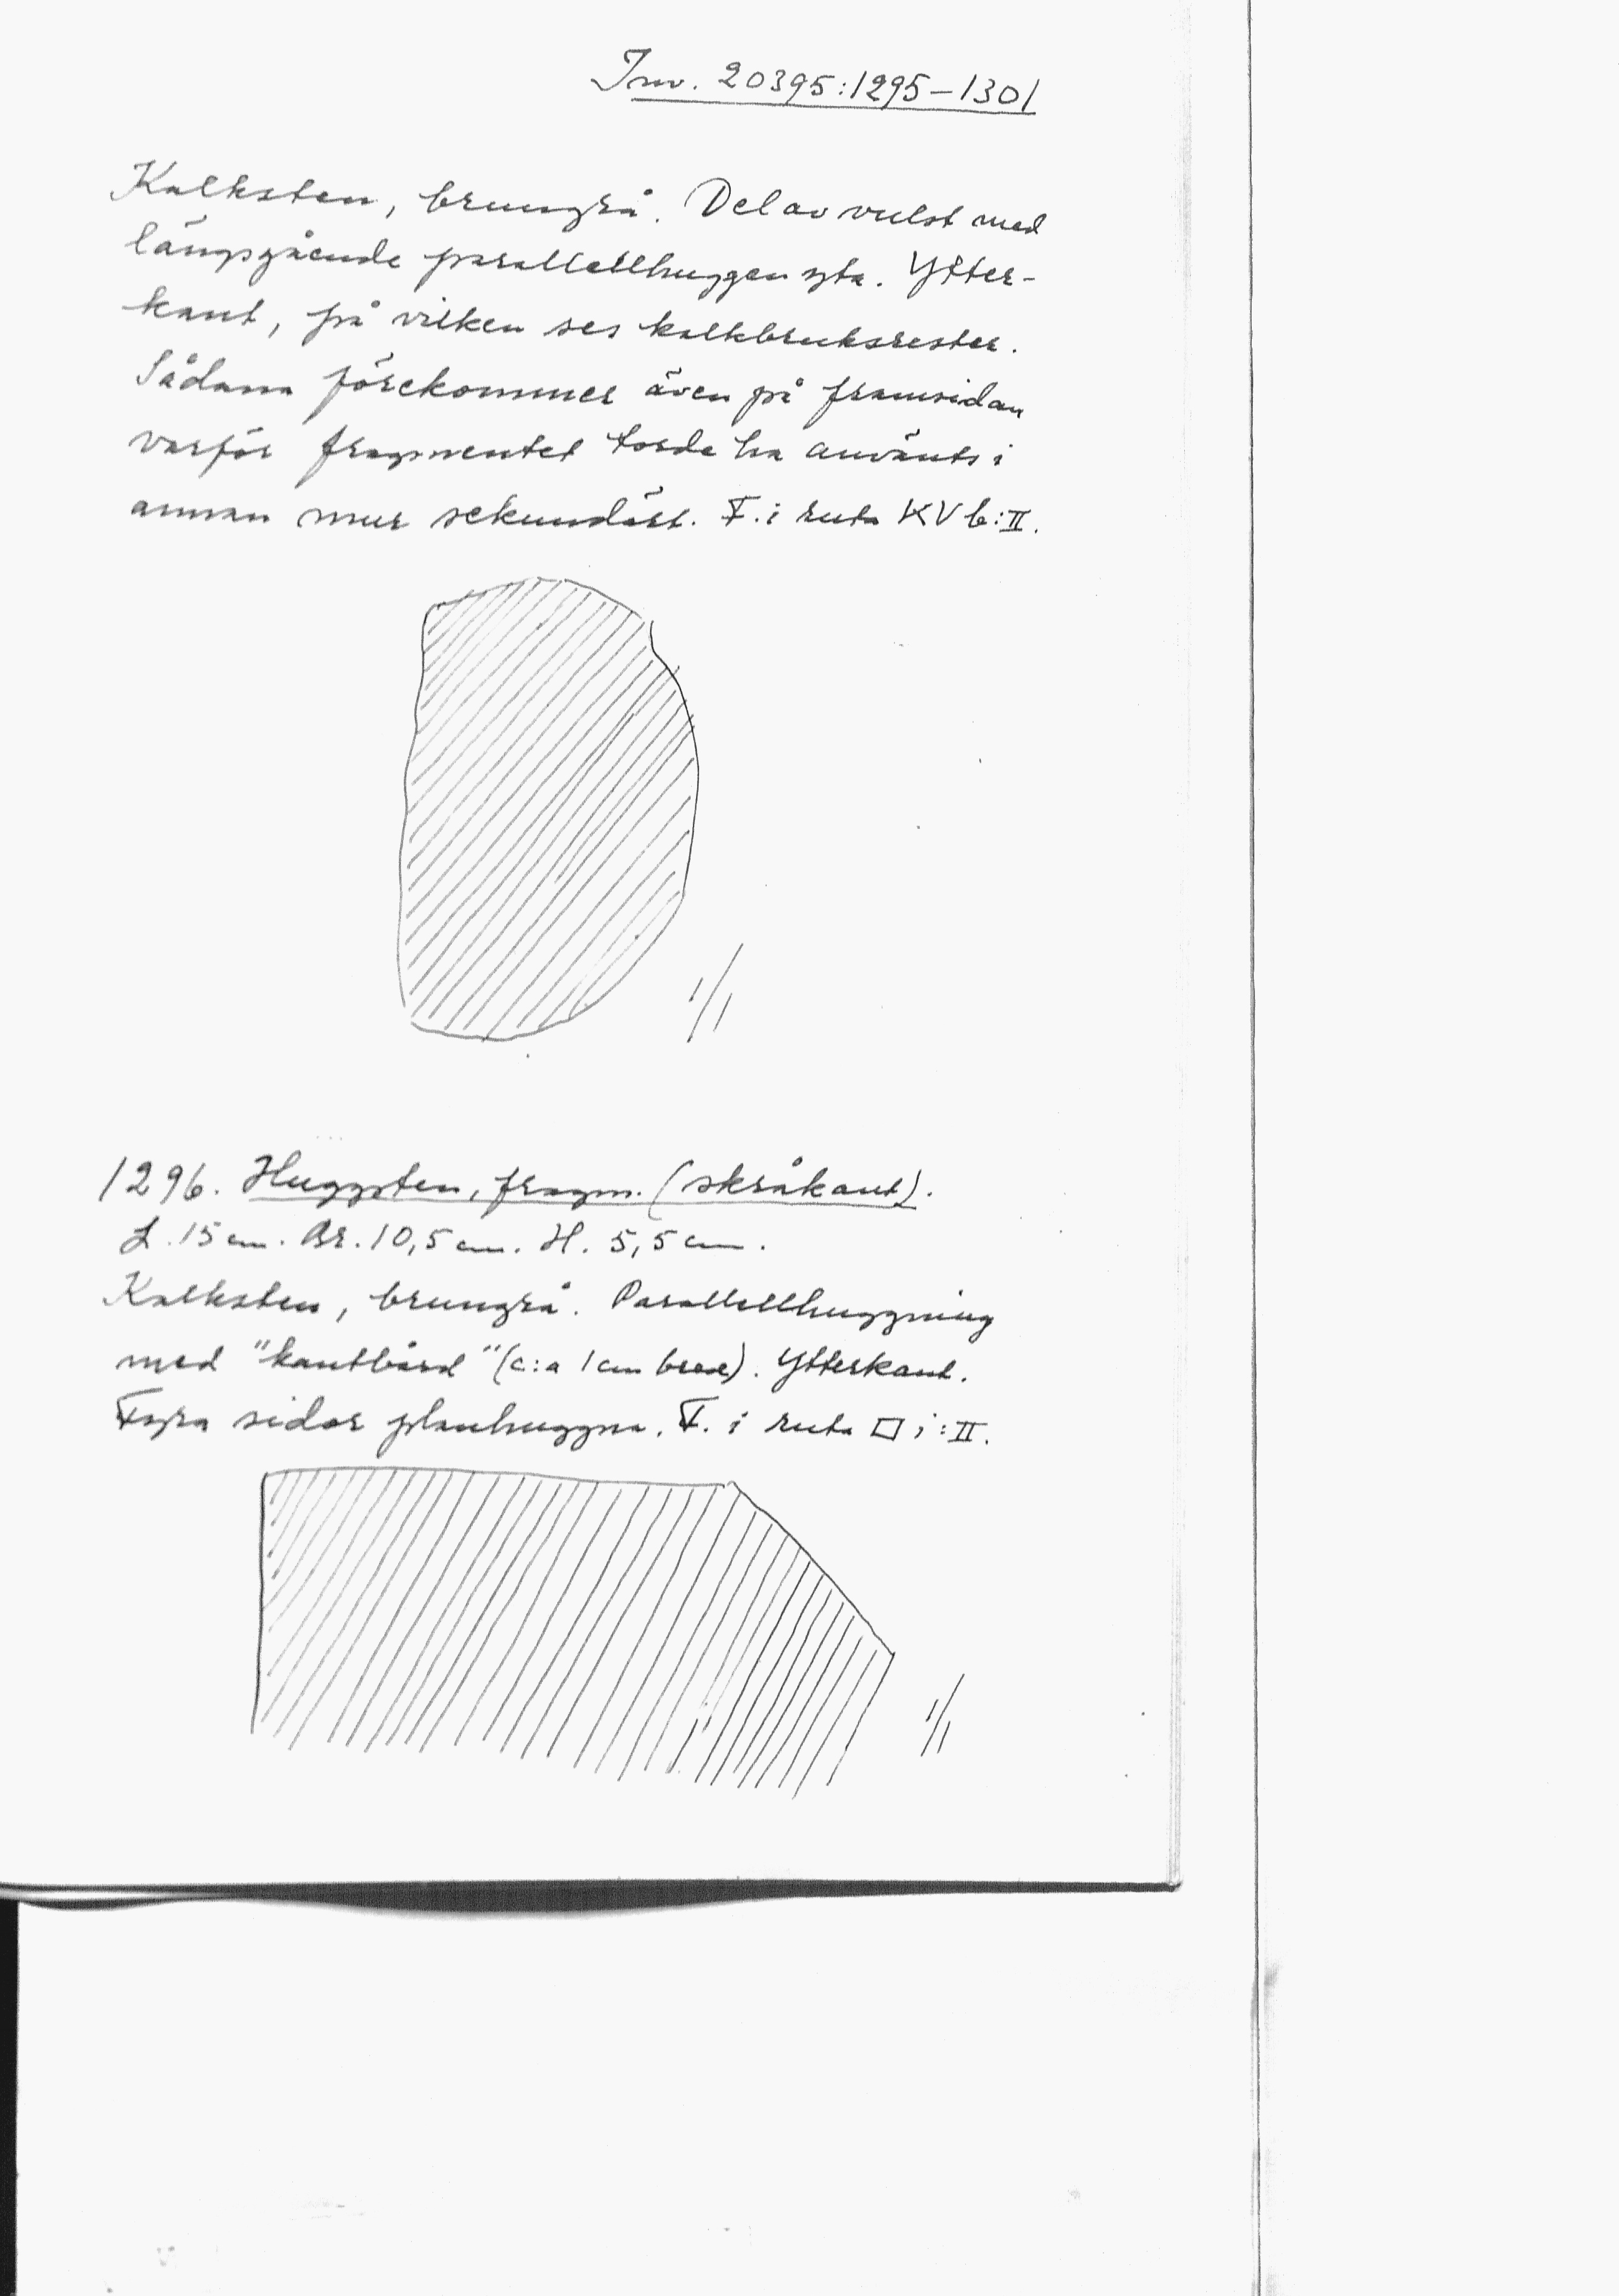 Inv. 20395:1295–1301
Kalksten, brungrå. Del av vulst med
längsgående parallellhuggen yta. Ytter-
kant, på vilken ses kalkbruksrester.
Sådana förekommer även på framsidan
varför fragmentet torde ha använts i
annan mur sekundärt. F. i ruta KV b:II.
1/1
1296. Huggsten, fragm. (skråkant).
L. 15 cm. Br. 10,5 cm. H. 5,5 cm.
Kalksten, brungrå. Parallellhuggning
med "kantbård" (c:a 1 cm bred). Ytterkant.
Fyra sidor planhuggna. F. i ruta □ i:II.
1/1